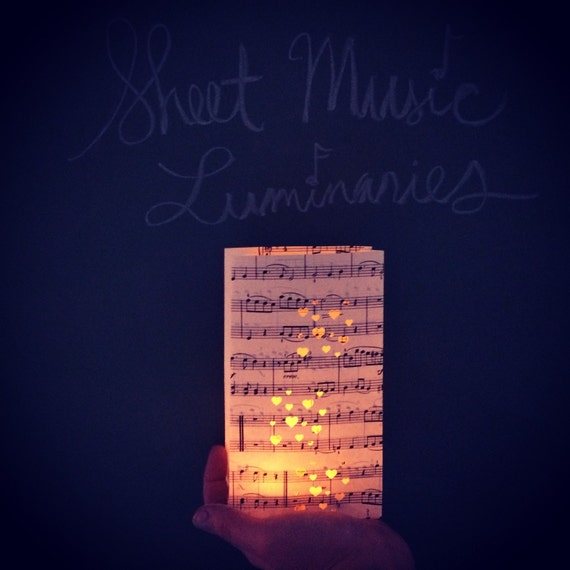 Sheet Music
Luminaries